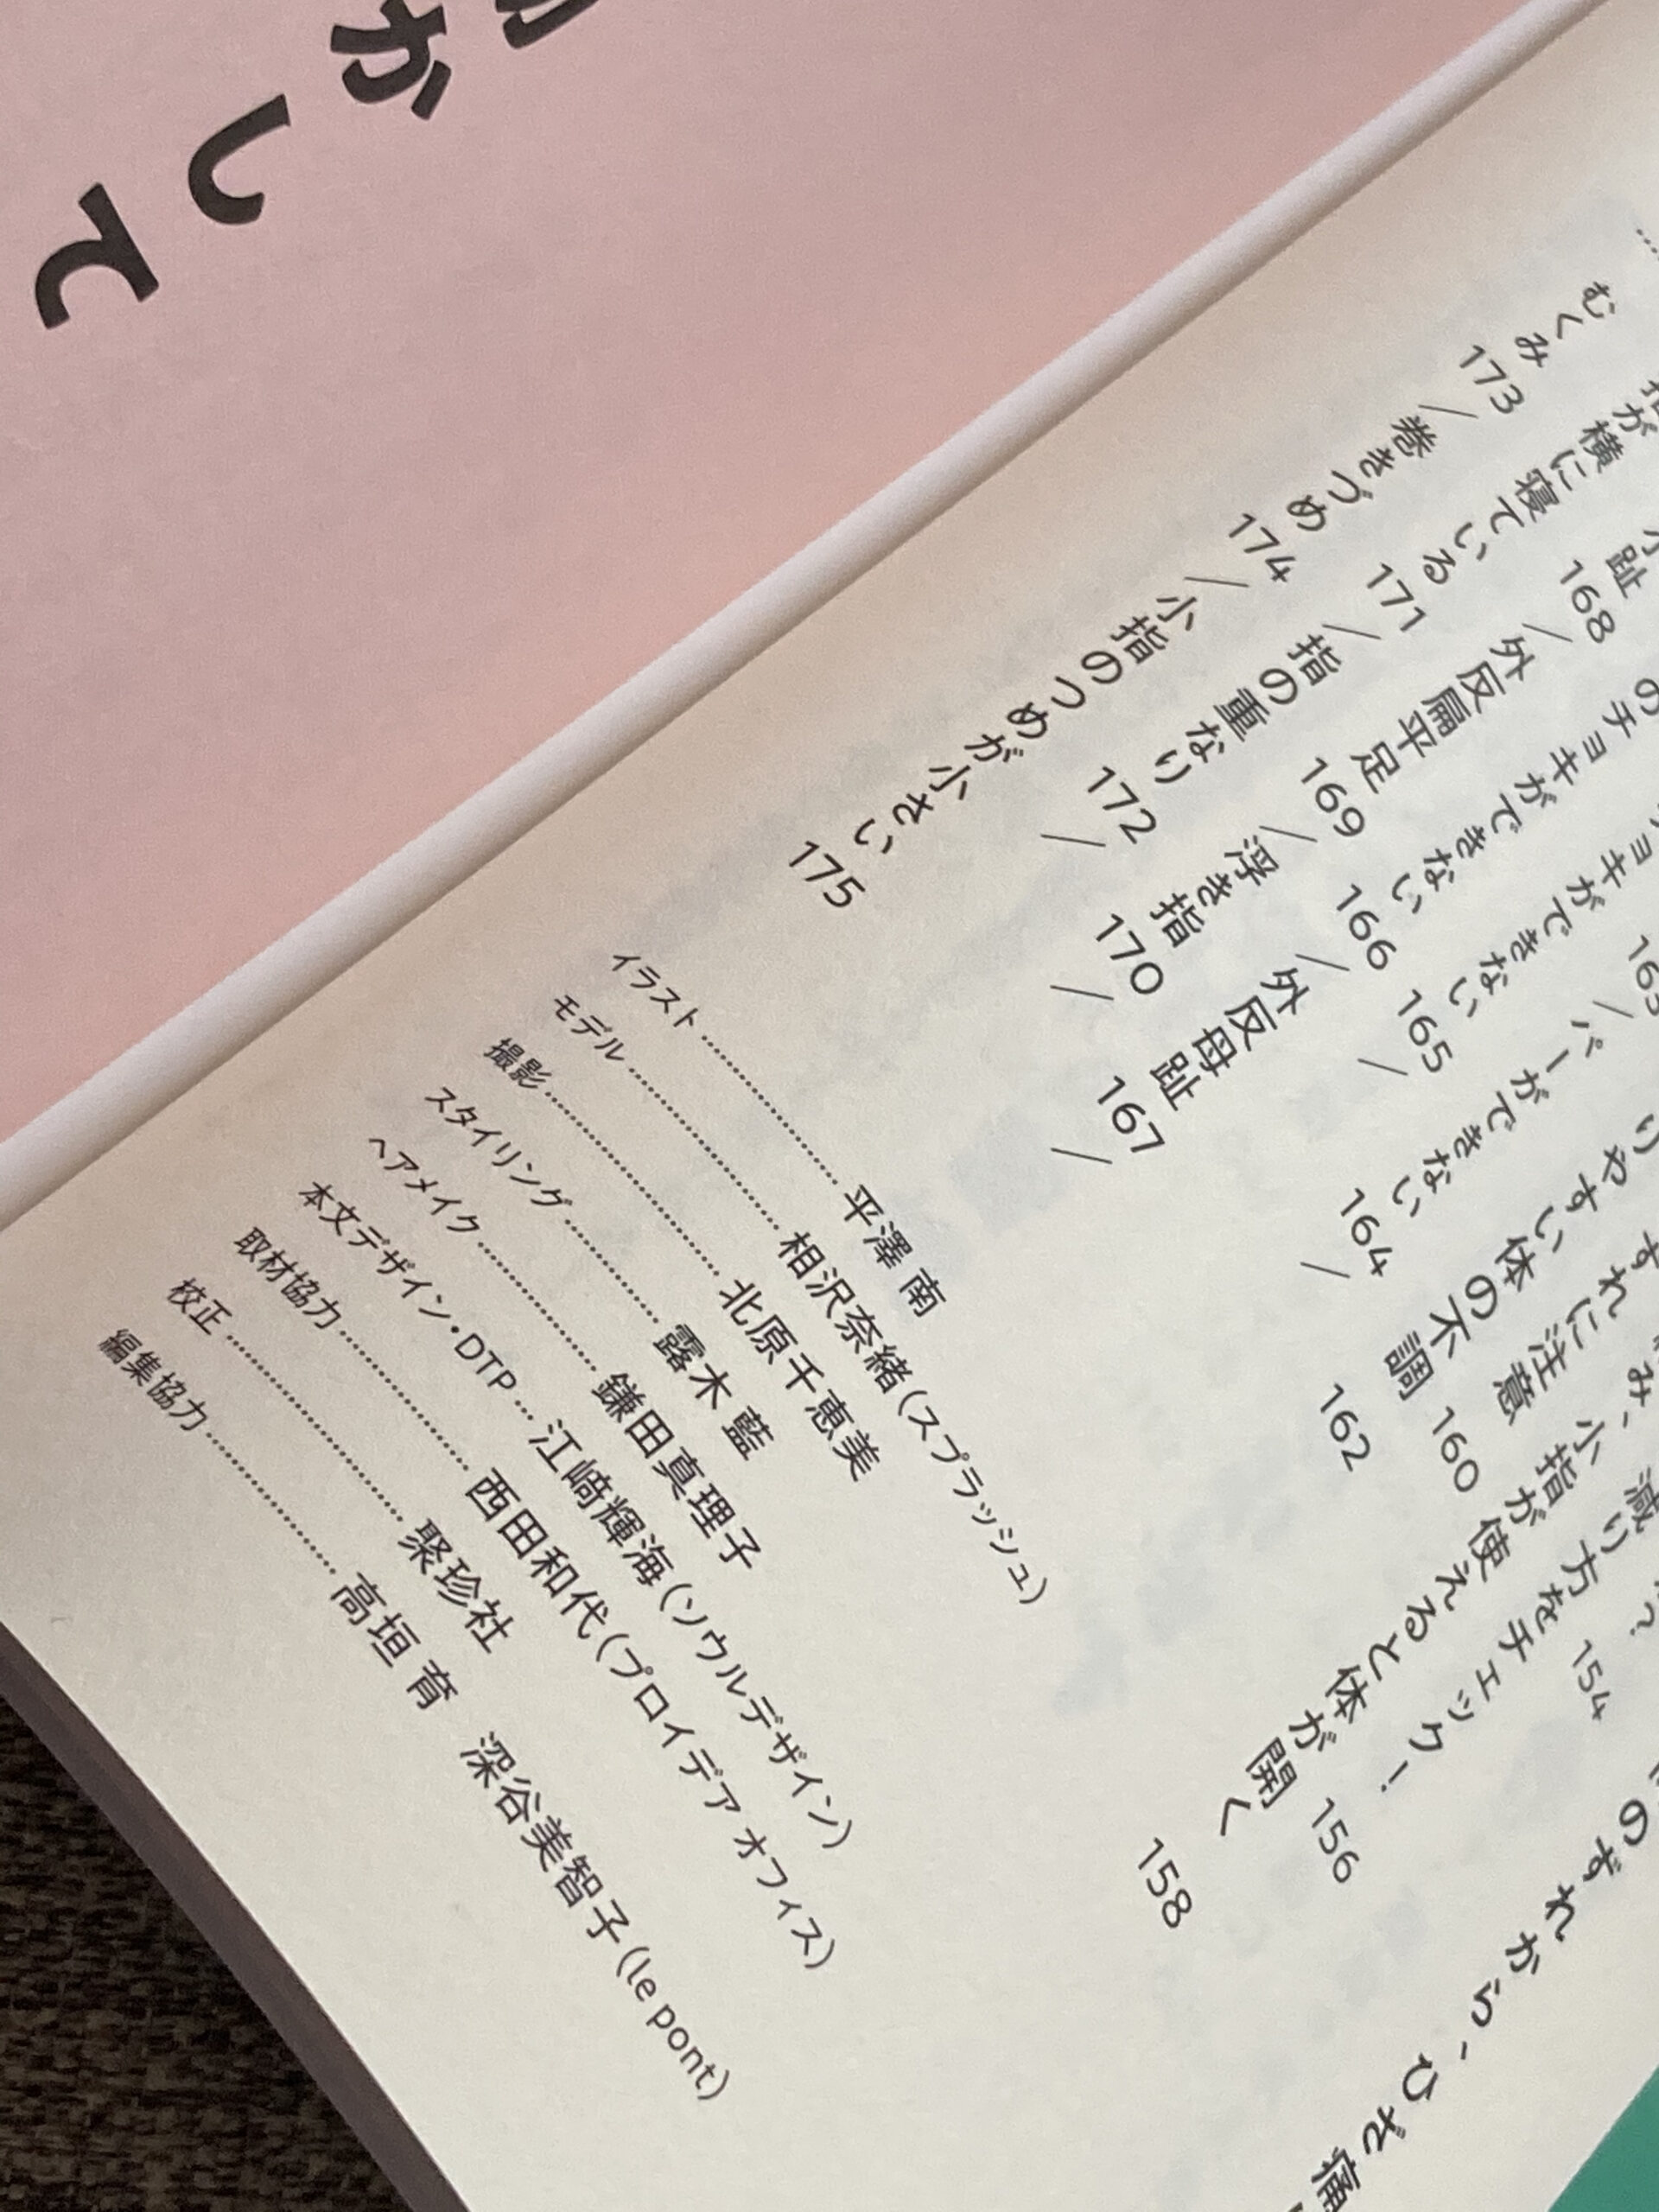 のずれから、ひざ痛
？ 154
減り方をチェック！ 156
み、小指が使えると体が開く 158
ずれに注意 160
りやすい体の不調 162
／パーができない 164／
ョキができない 165／
のチョキができない 166／外反母趾 167／
趾 168／外反扁平足 169／浮き指 170／
が横に寝ている 171／指の重なり 172／
むくみ 173／巻きづめ 174／小指のつめが小さい 175
イラスト…………平澤 南
モデル…………相沢奈緒（スプラッシュ）
撮影…………北原千恵美
スタイリング…………露木 藍
ヘアメイク…………鎌田真理子
本文デザイン・DTP……江﨑輝海（ソウルデザイン）
取材協力…………西田和代（プロイデア オフィス）
校正…………聚珍社
編集協力…………高垣 育　深谷美智子（le pont）
がして